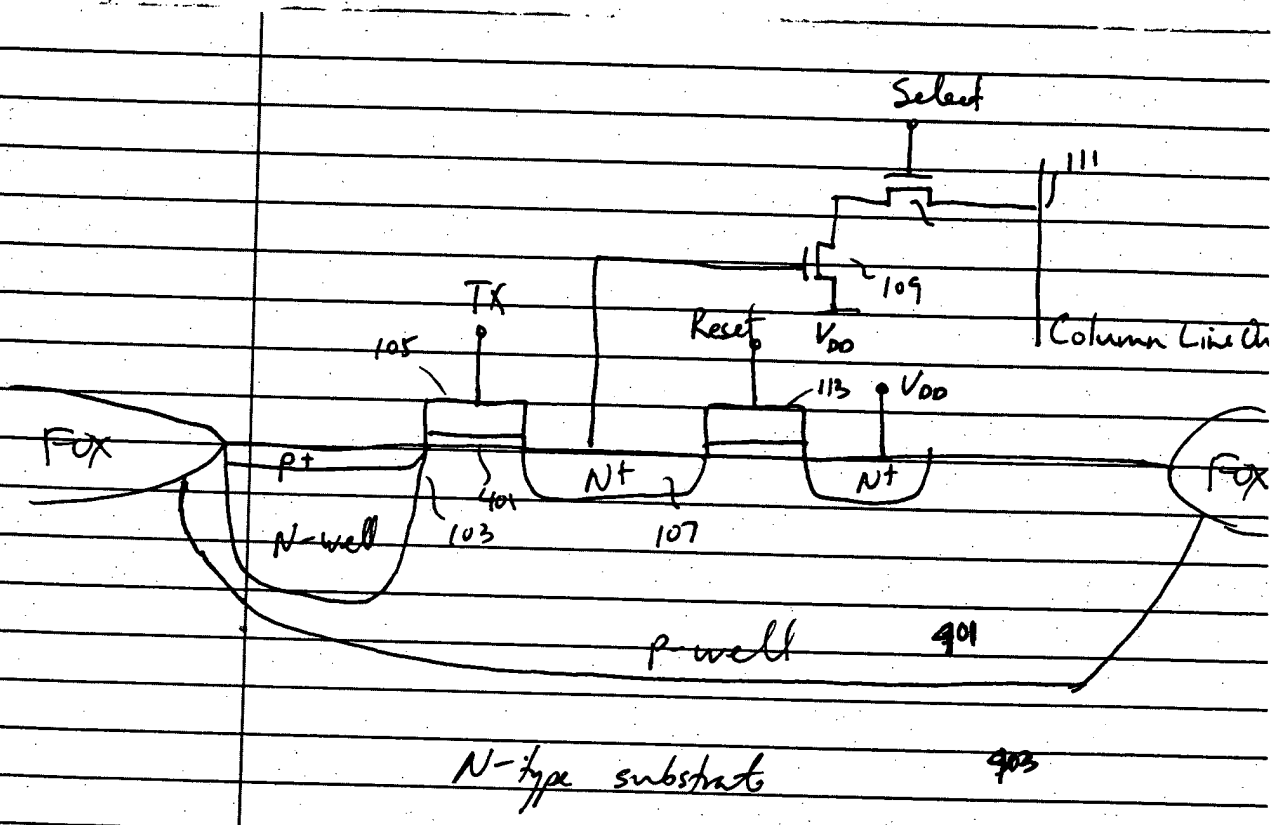 Select
111
109
TX
Reset
VDD
Column Line Ou
105
113
VDD
FOX
P+
N+
N+
FOX
401
N-well
103
107
P-well
401
N-type substrate
403